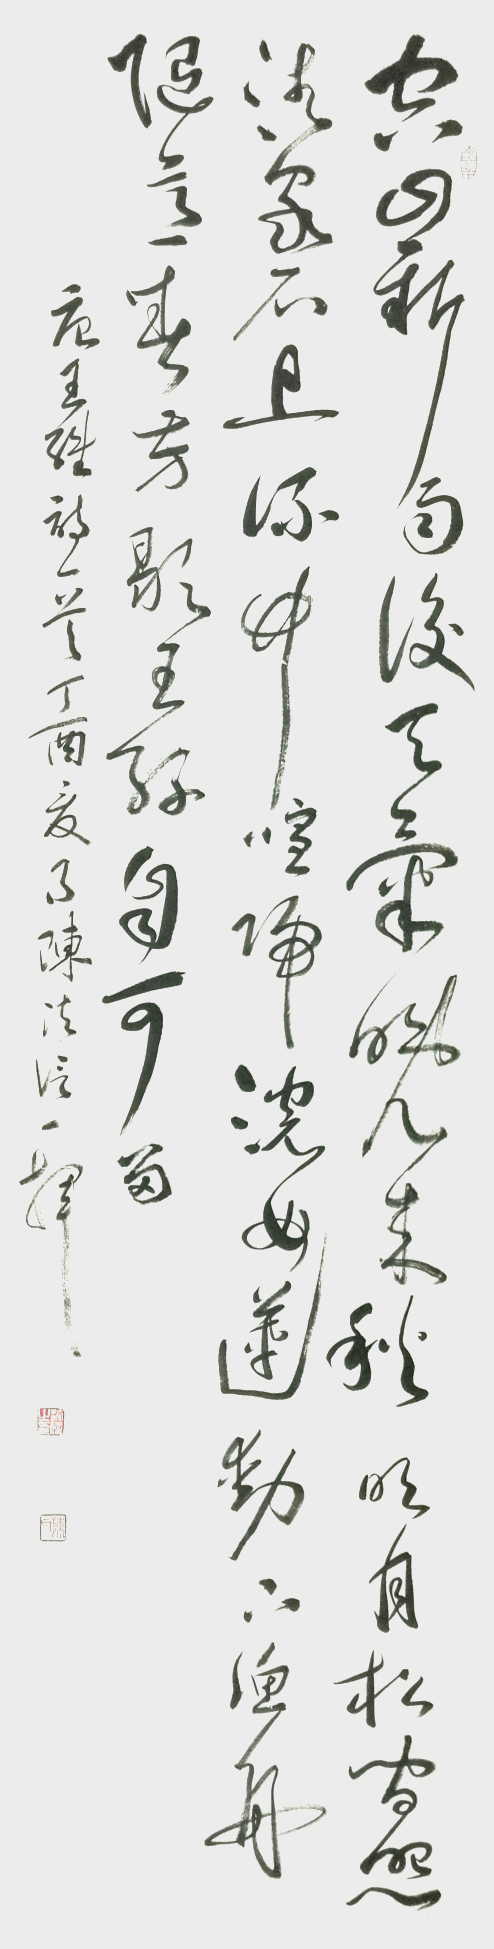 空山新雨後天氣晚來秋明月松間照
清泉石上流竹喧歸浣女蓮動下漁舟
隨意春芳歇王孫自可留
唐王維詩一首丁酉夏月陳法信一揮